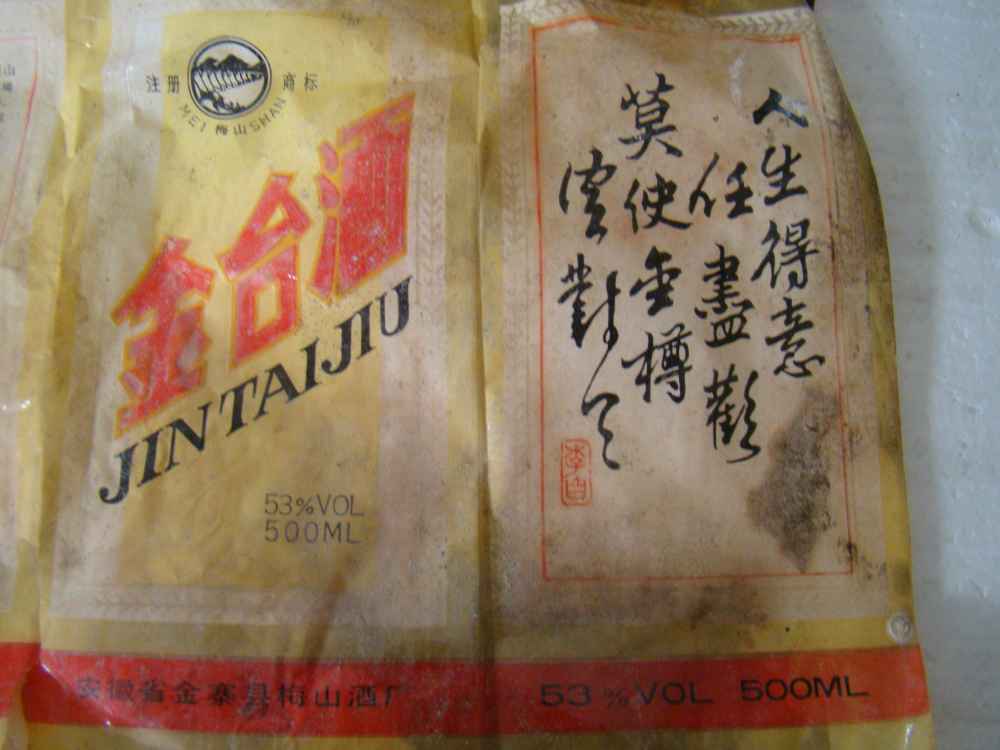 注册 商标
MEI 梅山 SHAN
金台酒
JINTAIJIU
53%VOL
500ML
安徽省金寨县梅山酒厂
人生得意
任盡歡
莫使金樽
空對月
李白
53%VOL 500ML